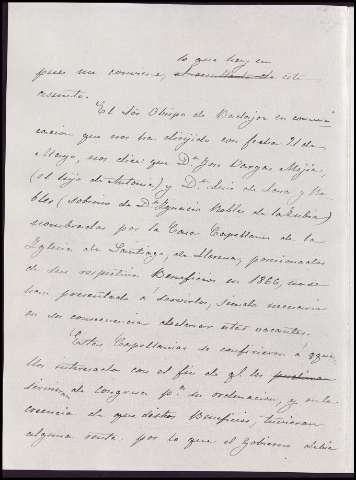 lo que hay en
pues me conviene, de este
asunto.
El Sõr Obispo de Badajoz en comuni
cacion que nos ha dirijido con fecha 21 de
Mayo, nos dice: que Dn. Jose Vargas Mejia,
(el hijo de Antonia) y Dn. Luis de Lara y Ro
bles (sobrino de Dn. Ignacio Robles de la Rubia)
nombrados por la Casa Capellanes de la
Iglesia de Santiago, de Llerena, posesionados
de sus respectivos Beneficios en 1866, no se
han presentado á servirlos, siendo necesario
en su consecuencia declarar estas vacantes.
Estas Capellanias se confirieron á aque
llos interesados con el fin de ql. les
sirviesen de congrua pa. su ordenacion, y en la
creencia de que dichos Beneficios, tuvieran
alguna renta. por lo que el Gobierno debia